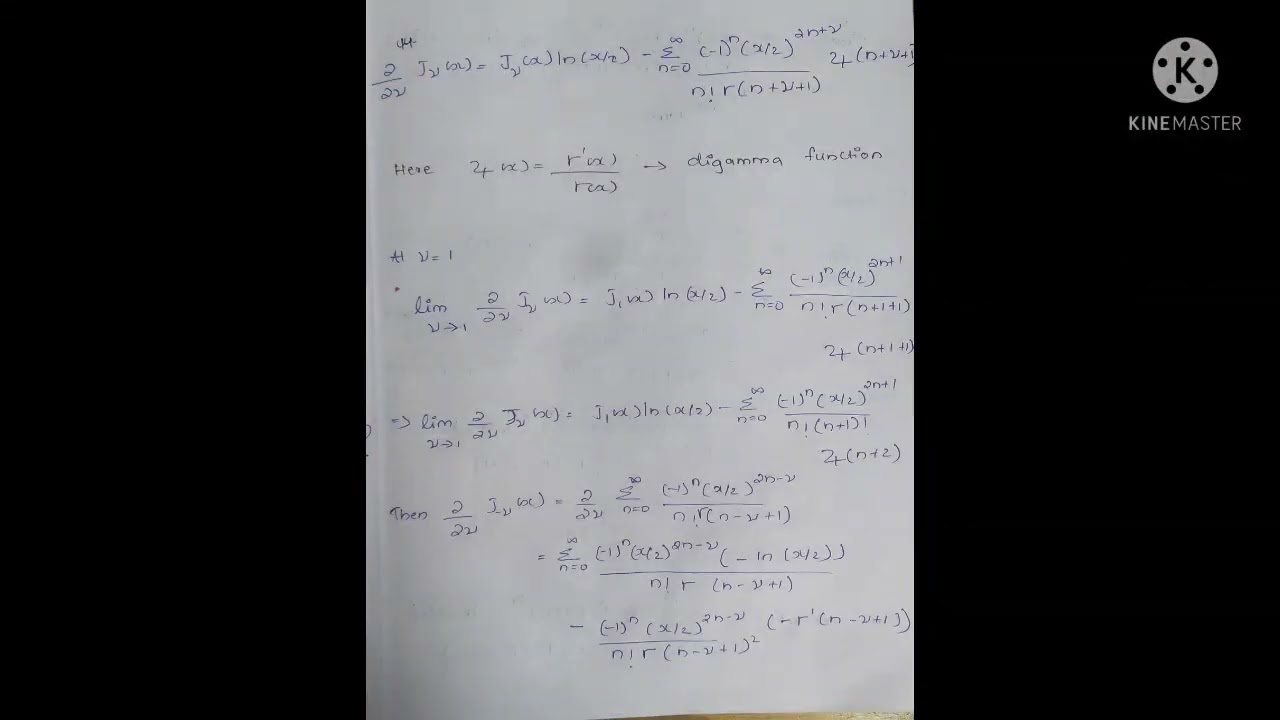 ∂/∂ν J_ν(x) = J_ν(x) ln(x/2) - Σ_{n=0}^{∞} (-1)^n (x/2)^{2n+ν} / n! Γ(n+ν+1) ψ(n+ν+1)
Here ψ(x) = Γ'(x) / Γ(x) → digamma function
At ν = 1
lim_{ν→1} ∂/∂ν J_ν(x) = J_1(x) ln(x/2) - Σ_{n=0}^{∞} (-1)^n (x/2)^{2n+1} / n! Γ(n+1+1)
ψ(n+1+1)
⇒ lim_{ν→1} ∂/∂ν J_ν(x) = J_1(x) ln(x/2) - Σ_{n=0}^{∞} (-1)^n (x/2)^{2n+1} / n! (n+1)!
ψ(n+2)
Then ∂/∂ν J_ν(x) = ∂/∂ν Σ_{n=0}^{∞} (-1)^n (x/2)^{2n-ν} / n! Γ(n-ν+1)
= Σ_{n=0}^{∞} (-1)^n (x/2)^{2n-ν} (-ln(x/2)) / n! Γ(n-ν+1)
- (-1)^n (x/2)^{2n-ν} / n! Γ(n-ν+1)^2 (-Γ'(n-ν+1))
KINEMASTER